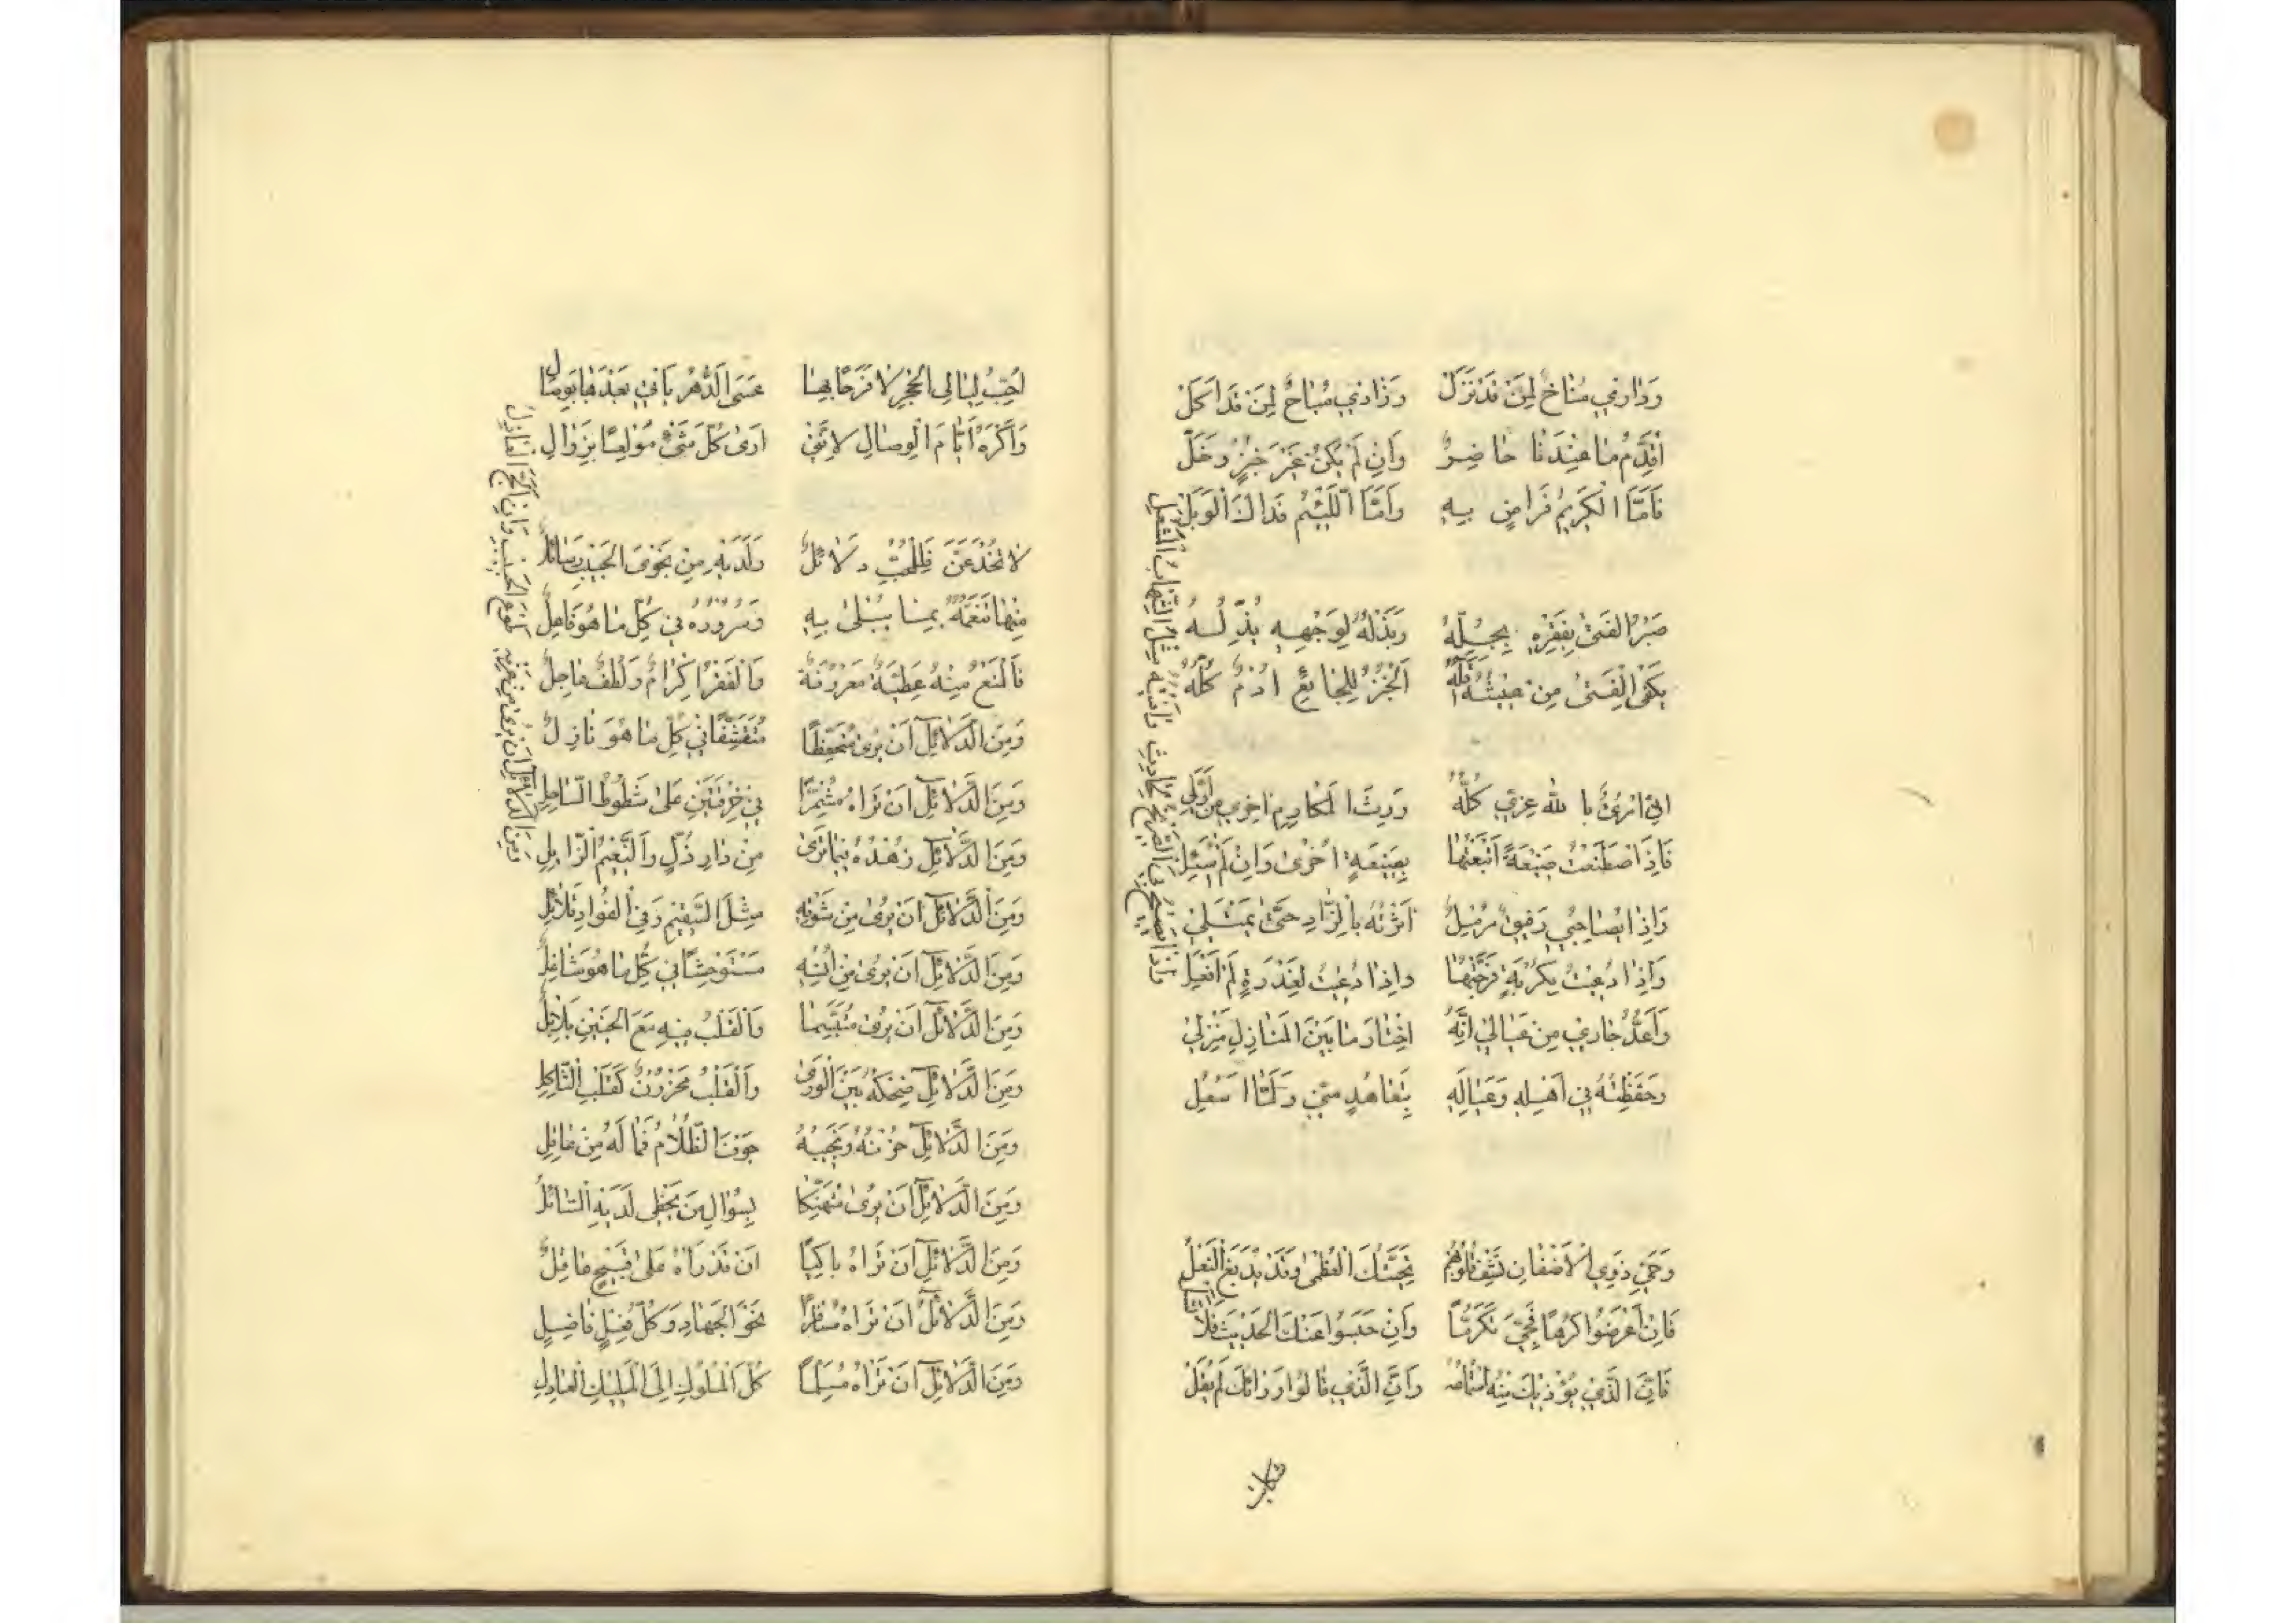 وَدٰارٖي مُنٰاخٌ لِمَنْ قَدْ نَزَلْ وَزٰادٖي مُبٰاحٌ لِمَنْ قَدْ اَكَلْ
اُقَدِّمُ مٰا عِنْدَنٰا حٰاضِرٌ وَاِنْ لَمْ يَكُنْ غَيْرَ خُبْزٍ وَخَلّ
فَاَمَّا الْكَرٖيمُ فَرٰاضٍ بِهٖ وَاَمَّا اللَّئٖيمُ فَذٰاكَ الْوَبَلْ
صَبْرُ الْفَتىٰ بِفَقْرِهٖ يُجِلُّهُ وَبَذْلُهُ لِوَجْهِهٖ يُذِلُّهُ
يَكْفِي الْفَتىٰ مِنْ عَيْشِهٖ اَقَلُّهُ اَلْخُبْزُ لِلْجٰايِعِ اُدْمٌ كُلُّهُ
اِنّٖي امْرُئٌ بِاللهِ عِزّٖي كُلُّهُ وَرِثَ الْمَكٰارِمَ اٰخِرٖي مِنْ اَوَّلٖي
فَاِذَا اصْطَنَعْتُ صَنٖيعَةً اَتْبَعْتُهٰا بِصَنٖيعَةٍ اُخْرىٰ وَاِنْ لَمْ اُسْئَلِ
وَاِذٰا يُصٰاحِبُنٖي رَفٖيقٌ مُرْمِلٌ اٰثَرْتُهُ بِالزّٰادِ حَتّىٰ يَمْتَلٖي
وَاِذٰا دُعٖيتُ لِكُرْبَةٍ فَرَّجْتُهٰا وَاِذٰا دُعٖيتُ لِغَدْرَةٍ لَمْ اَفْعَلِ
فَاِذٰا يَصٖيحُ بِيَ الصَّرٖيخُ لِحٰادِثٍ وَافَيْتُهُ مِثْلَ الشِّهٰابِ الْمُشْعَلِ
وَاَعُدُّ جٰارٖي مِنْ عَيٰالٖي اِنَّهُ اخْتٰارَ مٰا بَيْنَ الْمَنٰازِلِ مَنْزِلٖي
وَحَفِظْتُهُ فٖي اَهْلِهٖ وَعَيٰالِهٖ بِتَعٰاهُدٍ مِنّٖي وَلَمّٰا اَسْئَلِ
وَحَيِّ ذَوِي الْاَضْغٰانِ تَشْفِ قُلُوبَهُمْ تَحِيَّتُكَ الْعُظْمىٰ وَقَدْ يُدْبَغُ النَّغَلُ
فَاِنْ اَعْرَضُوا كَرْهًا فَحَيِّ تَكَرُّمًا وَاِنْ حَبَسُوا عَنْكَ الْحَدٖيثَ فَلا تَسَلْ
فَاِنَّ الَّذٖي يُؤْذٖيكَ مِنْهُ اسْتِمٰاعُهُ وَاِنَّ الَّذٖي قٰالُوا وَرٰائَكَ لَمْ يُقَلْ
اُحِبُّ لَيٰالِي الْهَجْرِ لا فَرَحًا بِهٰا عَسَى الدَّهْرُ يَأْتٖي بَعْدَهٰا بِوِصٰالٍ
وَاَكْرَهُ اَيّٰامَ الْوِصٰالِ لِاَنَّنٖي اَرىٰ كُلَّ شَيْءٍ مُولَعًا بِزَوٰالِ
لا تُخْدَعَنَّ فَلِلْمُحِبِّ دَلائِلٌ وَلَدَيْهِ مِنْ نَجْوَى الْحَبٖيبِ رَسٰائِلُ
مِنْهٰا تَنَعُّمُهُ بِمٰا يُبْلىٰ بِهٖ وَسُرُورُهُ فٖي كُلِّ مٰا هُوَ فٰاعِلُ
فَالْمَنْعُ مِنْهُ عَطِيَّةٌ مَعْرُوفَةٌ وَالْفَقْرُ اِكْرٰامٌ وَلُطْفٌ عٰاجِلٌ
وَمِنَ الدَّلائِلِ اَنْ يُرىٰ مُتَحَفِّظًا مُتَقَشِّفًا فٖي كُلِّ مٰا هُوَ نٰازِلٌ
وَمِنَ الدَّلائِلِ اَنْ تَرٰاهُ مُشَمِّرًا فٖي خِرْقَتَيْنِ عَلىٰ شُطُوطِ السّٰاحِلِ
وَمِنَ الدَّلائِلِ زُهْدُهُ فٖيمٰا تَرىٰ مِنْ دٰارِ ذُلٍّ وَالنَّعٖيمِ الزّٰايِلِ
وَمِنَ الدَّلائِلِ اَنْ يُرىٰ مِنْ شَوْقِهٖ مِثْلَ السَّقٖيمِ وَفِي الْفُؤٰادِ غَلائِلُ
وَمِنَ الدَّلائِلِ اَنْ يُرىٰ مِنْ اُنْسِهٖ مُسْتَوْحِشًا فٖي كُلِّ مٰا هُوَ شٰاغِلٌ
وَمِنَ الدَّلائِلِ اَنْ يُرىٰ مُتَبَسِّمًا وَالْقَلْبُ فٖيهِ مَعَ الْحَنٖينِ بَلابِلُ
وَمِنَ الدَّلائِلِ ضِحْكُهُ بَيْنَ الْوَرىٰ وَالْقَلْبُ مَحْزُونٌ كَقَلْبِ الثّٰاكِلِ
وَمِنَ الدَّلائِلِ حُزْنُهُ وَنَحٖيبُهُ جَوْفَ الظَّلامِ فَمٰا لَهُ مِنْ عٰاذِلِ
وَمِنَ الدَّلائِلِ اَنْ يُرىٰ مُتَمَسِّكًا بِسُؤٰالِ مَنْ يَحْظىٰ لَدَيْهِ السّٰائِلُ
وَمِنَ الدَّلائِلِ اَنْ تَرٰاهُ بٰاكِيًا اَنْ قَدْ رَاٰهُ عَلىٰ قَبٖيحٍ فٰاعِلٌ
وَمِنَ الدَّلائِلِ اَنْ تَرٰاهُ مُسٰافِرًا نَحْوَ الْجِهٰادِ وَكُلِّ فِعْلٍ فٰاضِلٍ
وَمِنَ الدَّلائِلِ اَنْ تَرٰاهُ مُسَلِّمًا كُلَّ الْمُلُوكِ اِلَى الْمَلٖيكِ الْعٰادِلِ